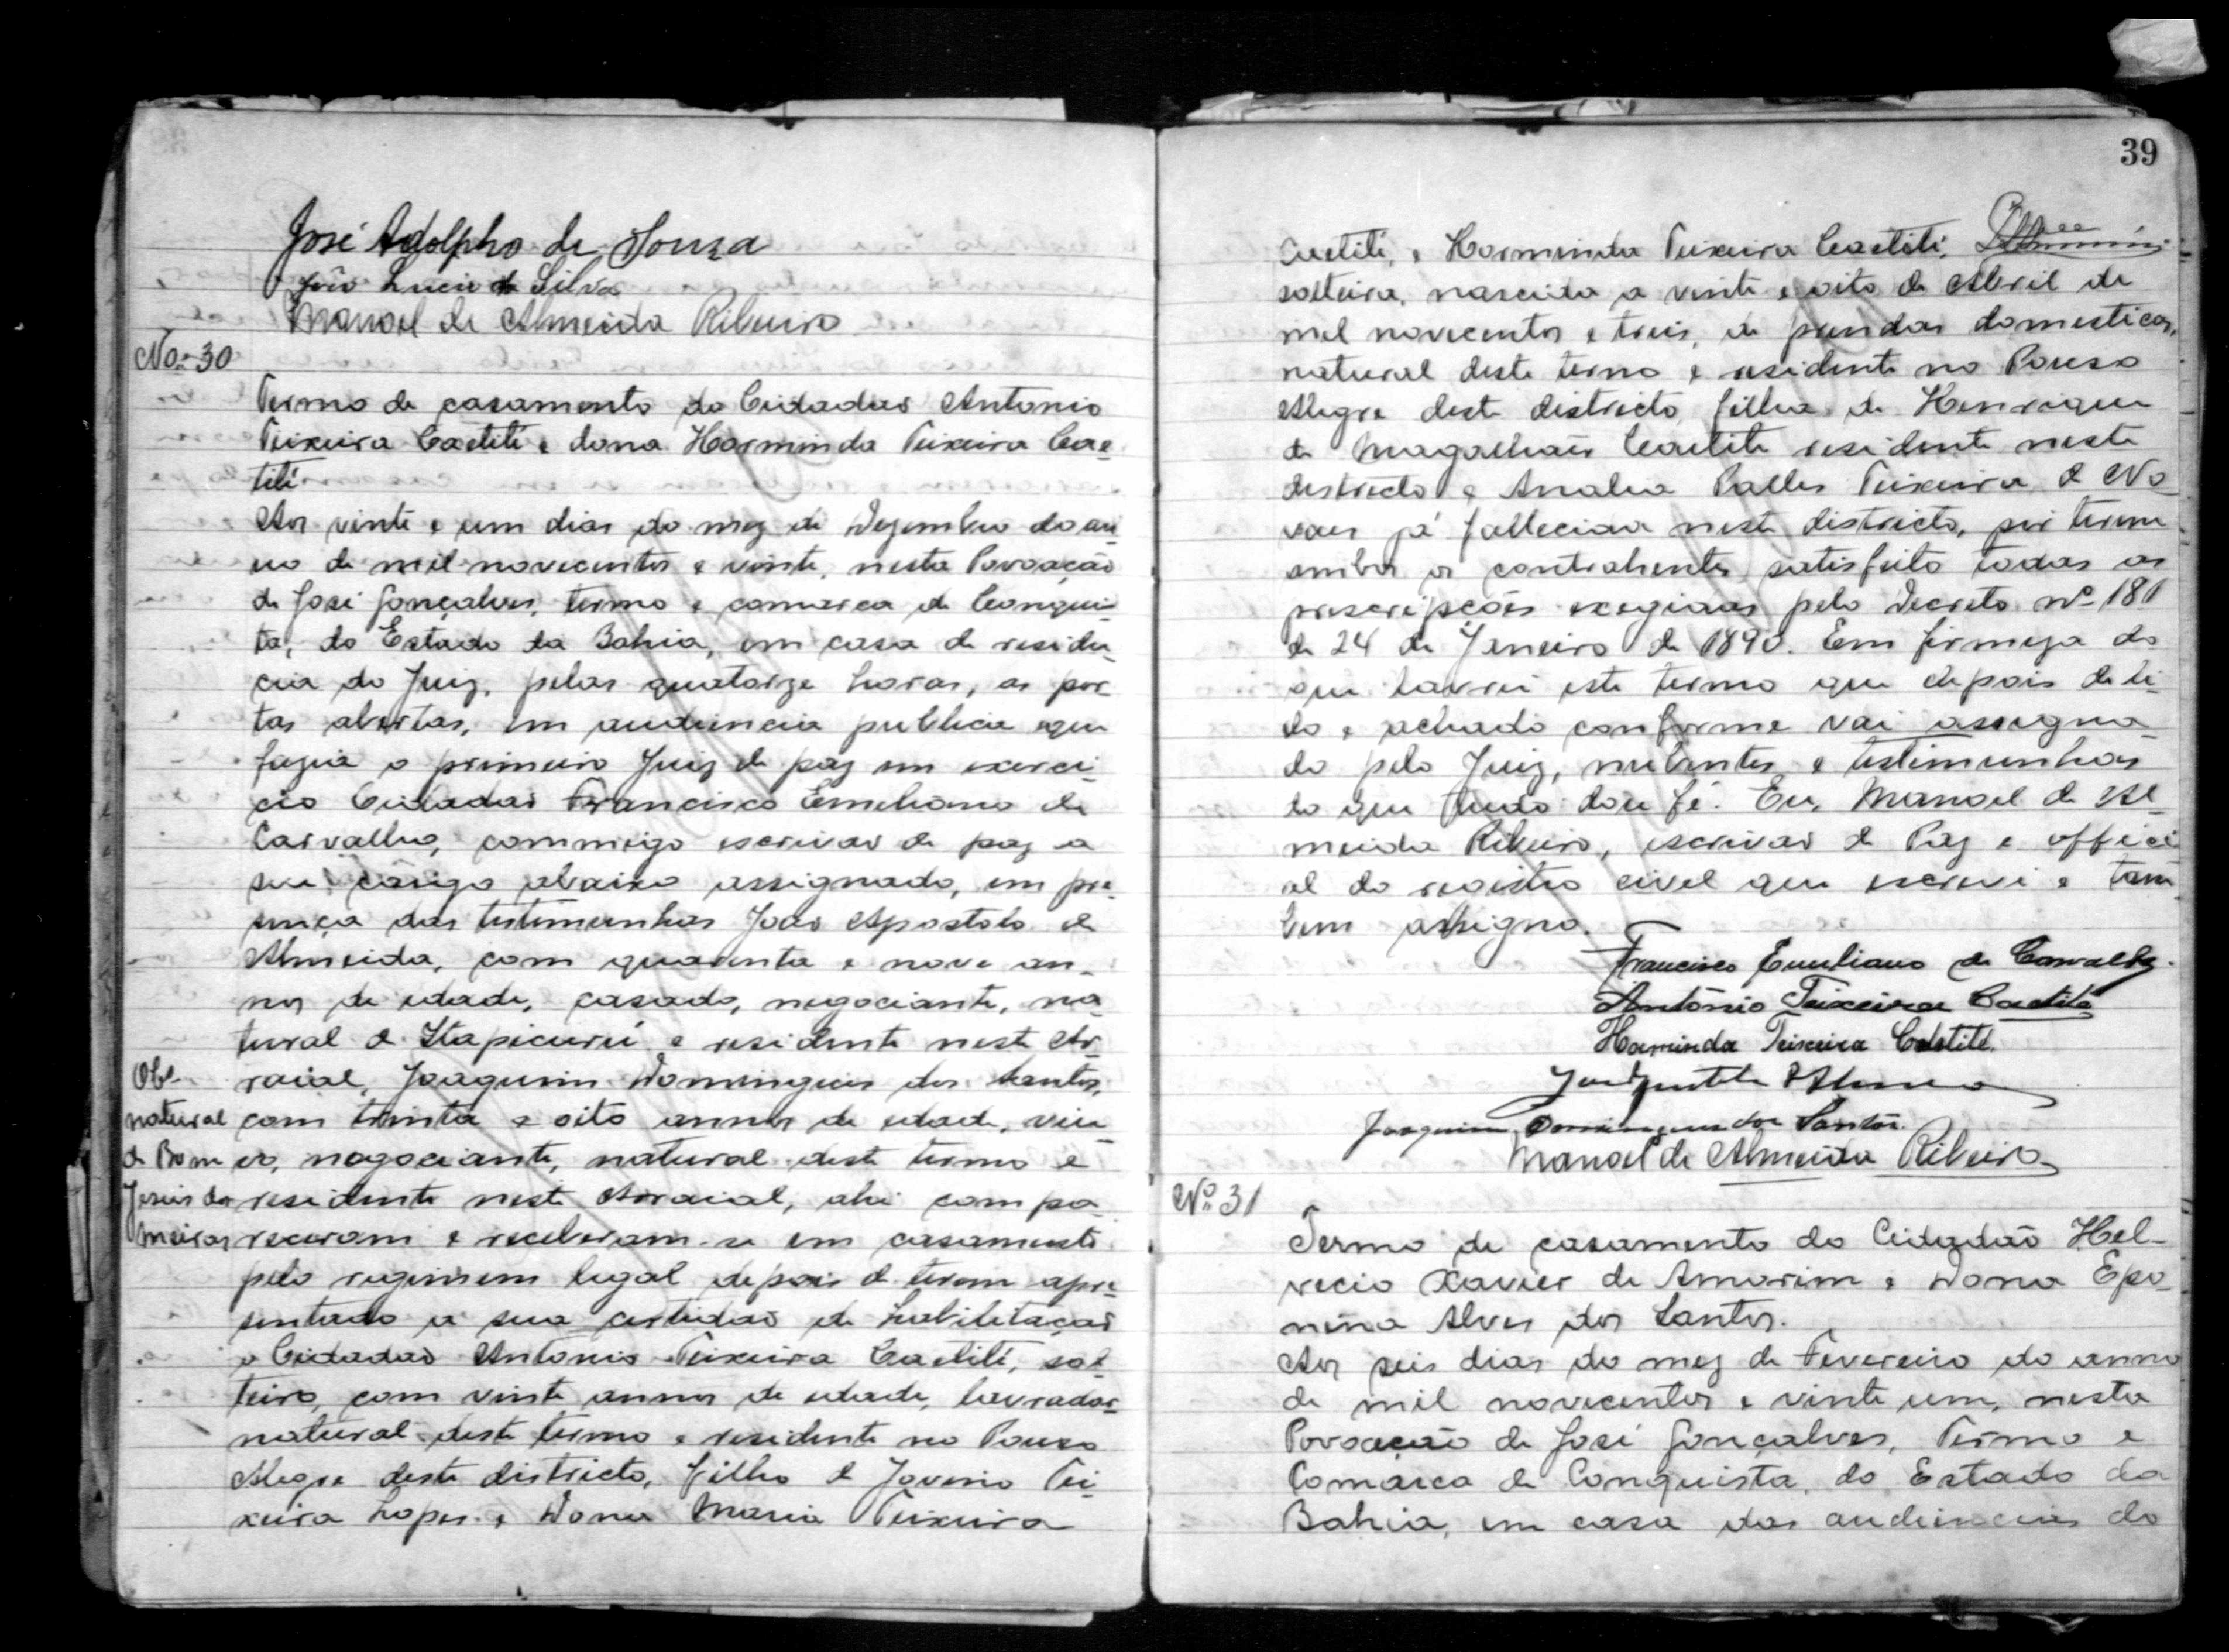 José Adolpho de Souza
João Lucio da Silva
Manoel de Almeida Ribeiro
No. 30
Termo de casamento do Cidadão Antonio
Teixeira Caetité e dona Harminda Teixeira Cae-
tité
Aos vinte e um dias do mez de Dezembro do an-
no de mil novecentos e vinte, nesta Povoação
de José Gonçalves, termo e comarca de Conquis-
ta, do Estado da Bahia, em casa de residen-
cia do Juiz, pelas quatorze horas, as por-
tas abertas, em audiencia publica que
fazia o primeiro Juiz de paz em exerci-
cio Cidadão Francisco Emeliano de
Carvalho, commigo escrivão de paz a
seu cargo abaixo assignado, em pre-
sença das testemunhas João Apostolo de
Almeida, com quarenta e nove an-
nos de edade, casado, negociante, na-
tural de Itapicurú e residente neste Ar-
raial, Joaquim Domingues dos Santos,
com trinta e oito annos de edade, viu-
vo, negociante, natural deste termo e
residente neste Arraial, ahi compa-
receram e receberam-se em casamento
pelo regimem legal depois de terem apre-
sentado a sua certidão de habilitação
o Cidadão Antonio Teixeira Caetité, sol-
teiro, com vinte annos de edade, lavrador
natural deste termo e residente no Pouso
Alegre deste districto, filho de Jovino Tei-
xeira Lopes e Dona Maria Teixeira
Obs.
natural
de Bom
Jesus dos
Meiras
39
Caetité, e Harminda Teixeira Caetité,
solteira, nascida a vinte e oito de Abril de
mil novecentos e treis, de prendas domesticas,
natural deste termo e residente no Pouso
Alegre deste districto, filha de Henrique
de Magalhães Caetité residente neste
districto e Analia Palles Teixeira de No-
vaes já fallecida neste districto, por terem
ambos os contrahentes satisfeito todas as
prescripções exegidas pelo Decreto nº 181
de 24 de Janeiro de 1890. Em firmeza do
que lavrei este termo que depois de li-
do e achado conforme vai assigna-
do pelo Juiz, nubentes e testimunhas
do que tudo dou fé. Eu, Manoel de Al-
meida Ribeiro, escrivão de Paz e offici-
al do registro civel que escrevi e tam-
bem assigno.
Francisco Emiliano de Carvalho.
Antônio Teixeira Caetité
Haminda Teixeira Catité.
Joaquim Domingues dos Santos.
Manoel de Almeida Ribeiro
Nº 31
Termo de casamento do Cidadão Hel-
vecio Xavier de Amorim e Dona Epo-
nina Alves dos Santos.
Aos seis dias do mez de Fevereiro do anno
de mil novecentos e vinte um, nesta
Povoação de José Gonçalves, Termo e
Comarca de Conquista, do Estado da
Bahia, em casa das audiencias do